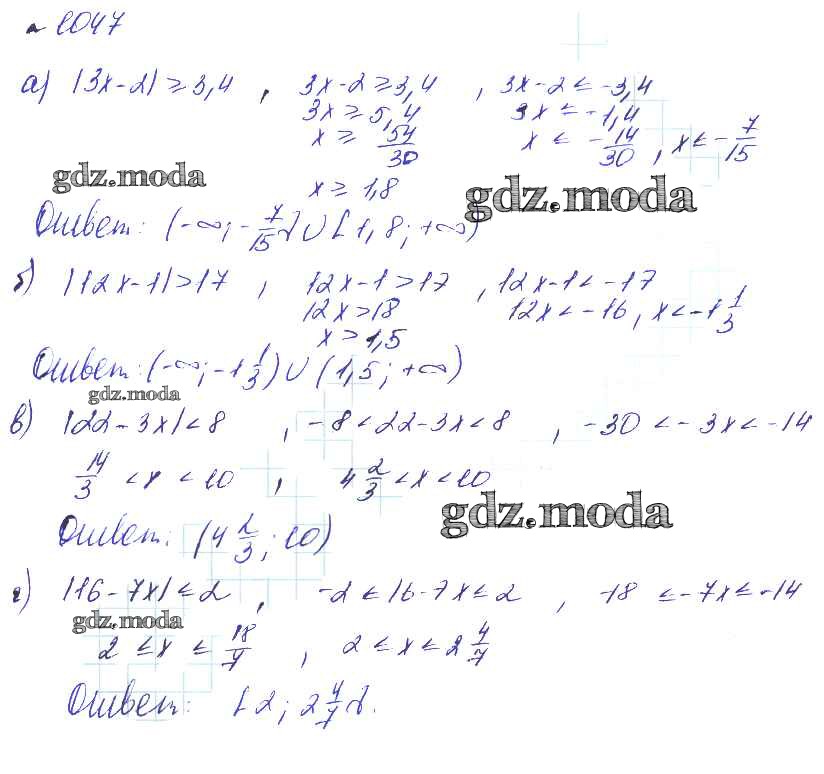 № 1047
а) |3x-2| ≥ 3,4 , 3x-2 ≥ 3,4 , 3x-2 ≤ -3,4
3x ≥ 5,4 3x ≤ -1,4
x ≥ 54/30 x ≤ -14/30 , x ≤ -7/15
gdz.moda x ≥ 1,8 gdz.moda
Ответ: (-∞; -7/15] ∪ [1,8; +∞)
б) |12x-1| > 17 , 12x-1 > 17 , 12x-1 < -17
12x > 18 12x < -16, x < -1 1/3
x > 1,5
Ответ: (-∞; -1 1/3) ∪ (1,5; +∞)
gdz.moda
в) |22-3x| < 8 , -8 < 22-3x < 8 , -30 < -3x < -14
14/3 < x < 10 , 4 2/3 < x < 10
gdz.moda
Ответ: (4 2/3; 10)
г) |16-7x| ≤ 2 , -2 ≤ 16-7x ≤ 2 , -18 ≤ -7x ≤ -14
gdz.moda
2 ≤ x ≤ 18/7 , 2 ≤ x ≤ 2 4/7
Ответ: [2; 2 4/7].